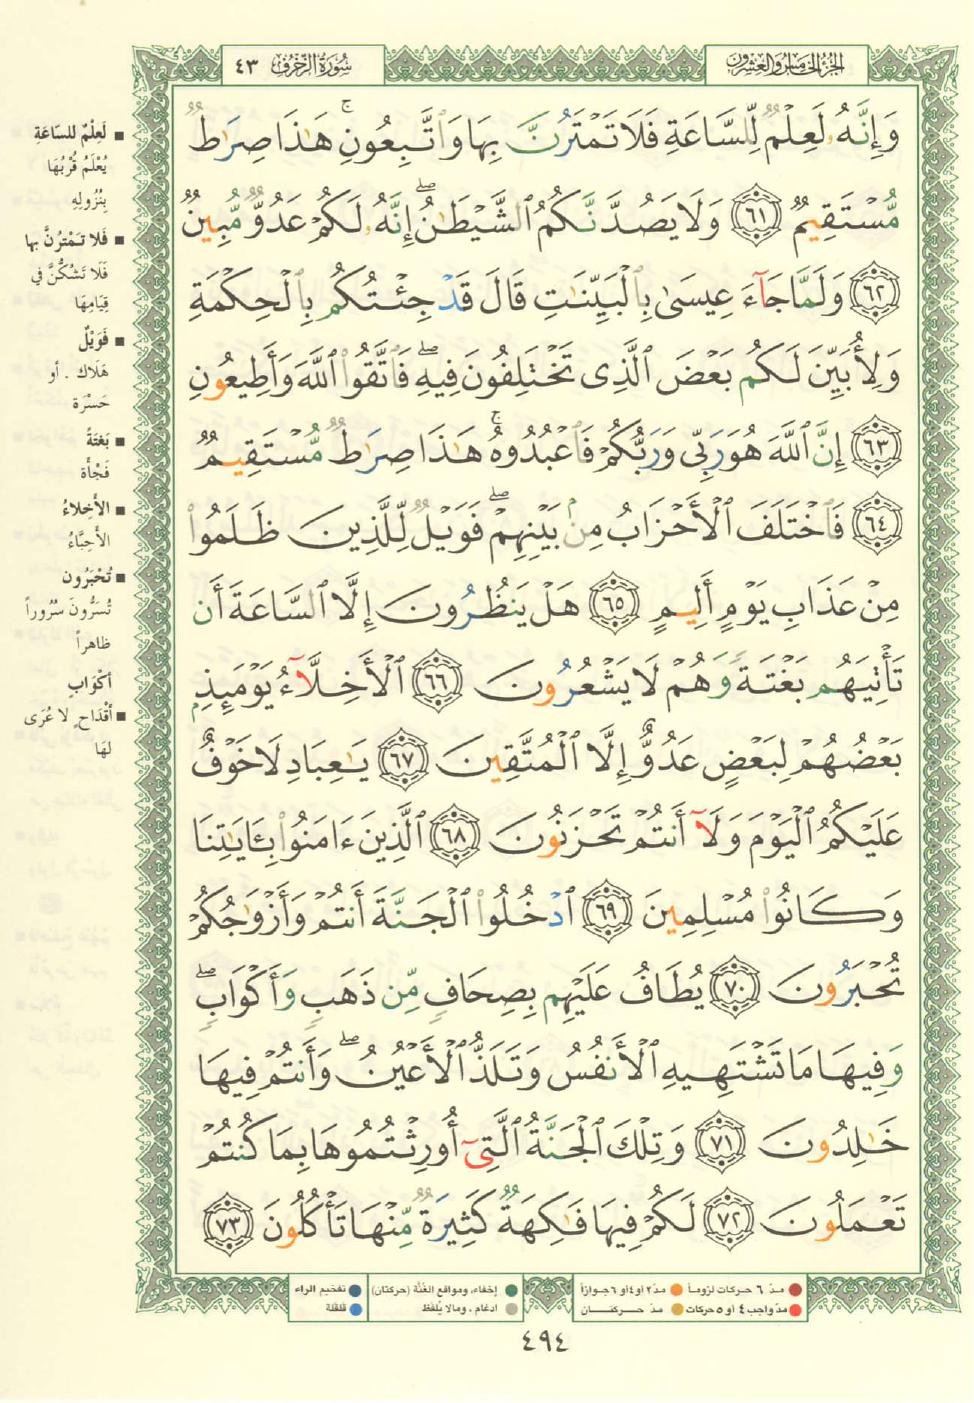 الجزء الخامس والعشرون
سورة الزخرف ٤٣
وَإِنَّهُۥ لَعِلْمٌ لِّلسَّاعَةِ فَلَا تَمْتَرُنَّ بِهَا وَٱتَّبِعُونِ ۚ هَٰذَا صِرَٰطٌ
مُّسْتَقِيمٌ ٦١ وَلَا يَصُدَّنَّكُمُ ٱلشَّيْطَٰنُ ۖ إِنَّهُۥ لَكُمْ عَدُوٌّ مُّبِينٌ
٦٢ وَلَمَّا جَآءَ عِيسَىٰ بِٱلْبَيِّنَٰتِ قَالَ قَدْ جِئْتُكُم بِٱلْحِكْمَةِ
وَلِأُبَيِّنَ لَكُم بَعْضَ ٱلَّذِى تَخْتَلِفُونَ فِيهِ ۖ فَٱتَّقُوا۟ ٱللَّهَ وَأَطِيعُونِ
٦٣ إِنَّ ٱللَّهَ هُوَ رَبِّى وَرَبُّكُمْ فَٱعْبُدُوهُ ۚ هَٰذَا صِرَٰطٌ مُّسْتَقِيمٌ
٦٤ فَٱخْتَلَفَ ٱلْأَحْزَابُ مِنۢ بَيْنِهِمْ ۖ فَوَيْلٌ لِّلَّذِينَ ظَلَمُوا۟
مِنْ عَذَابِ يَوْمٍ أَلِيمٍ ٦٥ هَلْ يَنظُرُونَ إِلَّا ٱلسَّاعَةَ أَن
تَأْتِيَهُم بَغْتَةً وَهُمْ لَا يَشْعُرُونَ ٦٦ ٱلْأَخِلَّآءُ يَوْمَئِذٍۭ
بَعْضُهُمْ لِبَعْضٍ عَدُوٌّ إِلَّا ٱلْمُتَّقِينَ ٦٧ يَٰعِبَادِ لَا خَوْفٌ
عَلَيْكُمُ ٱلْيَوْمَ وَلَآ أَنتُمْ تَحْزَنُونَ ٦٨ ٱلَّذِينَ ءَامَنُوا۟ بِـَٔايَٰتِنَا
وَكَانُوا۟ مُسْلِمِينَ ٦٩ ٱدْخُلُوا۟ ٱلْجَنَّةَ أَنتُمْ وَأَزْوَٰجُكُمْ
تُحْبَرُونَ ٧٠ يُطَافُ عَلَيْهِم بِصِحَافٍ مِّن ذَهَبٍ وَأَكْوَابٍ ۖ
وَفِيهَا مَا تَشْتَهِيهِ ٱلْأَنفُسُ وَتَلَذُّ ٱلْأَعْيُنُ ۖ وَأَنتُمْ فِيهَا
خَٰلِدُونَ ٧١ وَتِلْكَ ٱلْجَنَّةُ ٱلَّتِىٓ أُورِثْتُمُوهَا بِمَا كُنتُمْ
تَعْمَلُونَ ٧٢ لَكُمْ فِيهَا فَٰكِهَةٌ كَثِيرَةٌ مِّنْهَا تَأْكُلُونَ ٧٣
■ لَعِلْمٌ للسّاعَةِ
يُعْلَمُ قُرْبُهَا
بِنُزُولِهِ
■ فَلا تَمْتَرُنَّ بها
فَلَا تَشُكُّنَّ في
قِيَامِهَا
■ فَوَيْلٌ
هَلَاك . أو
حَسْرَة
■ بَغْتَةً
فَجْأَة
■ الأَخِلاءُ
الأَحِبَّاءُ
■ تُحْبَرُون
تُسَرُّونَ سُرُوراً
ظاهراً
أَكْوَابٍ
■ أَقْدَاحٍ لا عُرَى
لهَا
مدّ ٦ حركات لزوماً
مدّ ٢ او ٤ او ٦ جوازاً
مدّ واجب ٤ أو ٥ حركات
مدّ حركتان
إخفاء، ومواقع الغُنَّة (حركتان)
ادغام ، ومالا يُلفَظ
تفخيم الراء
قلقلة
٤٩٤